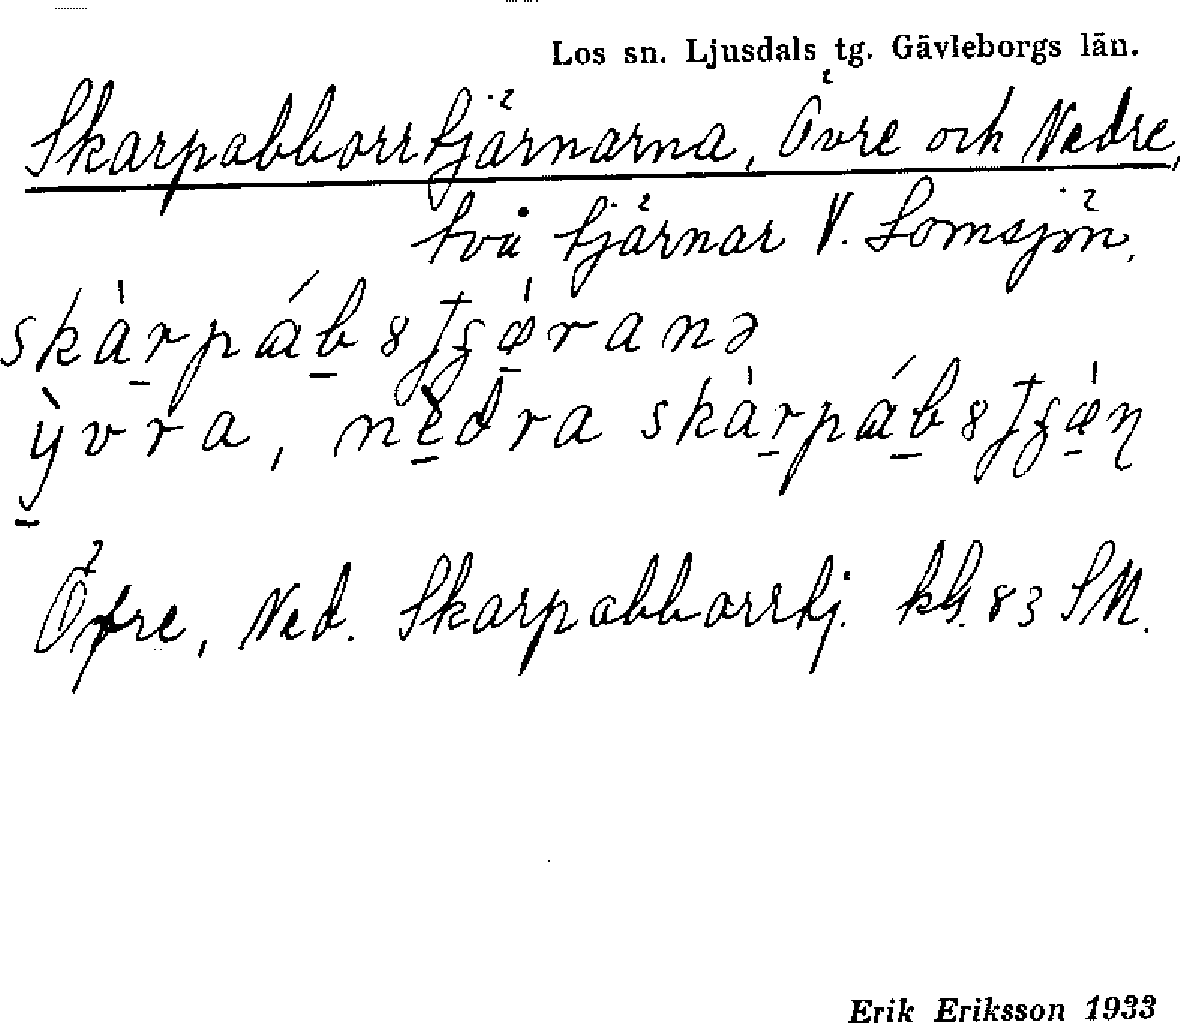 Los sn. Ljusdals tg. Gävleborgs län.
Skarpabborrtjärnarna, Övre och Nedre,
två tjärnar V. Lomsjön.
skàrpáb8ʃʒǽranə
ỳvra, nèdra skàrpáb8ʃʒǽɳ
Övre, Ned. Skarpabborrtj. kbl. 83 SM.
Erik Eriksson 1933